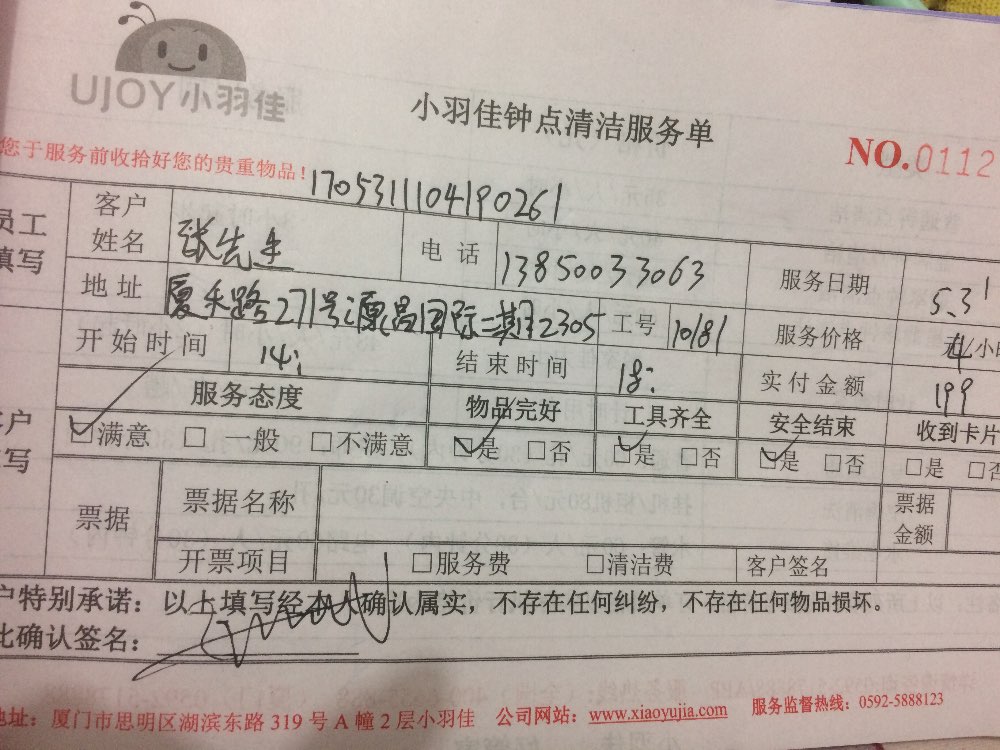 UJOY小羽佳
小羽佳钟点清洁服务单
NO.0112
您于服务前收拾好您的贵重物品!
1705311104190261
员工填写
客户姓名 张先生 电话 13850033063 服务日期 5.31
地址 厦禾路271号源昌国际二期2305 工号 10181 服务价格 4 元/小时
开始时间 14: 结束时间 18: 实付金额 199
服务态度 物品完好 工具齐全 安全结束 收到卡片
☑满意 □一般 □不满意 ☑是 □否 ☑是 □否 ☑是 □否 □是 □否
票据 票据名称 票据金额
开票项目 □服务费 □清洁费 客户签名
户特别承诺：以上填写经本人确认属实，不存在任何纠纷，不存在任何物品损坏。
此确认签名：
地址：厦门市思明区湖滨东路 319 号 A 幢 2 层小羽佳 公司网站：www.xiaoyujia.com 服务监督热线：0592-5888123